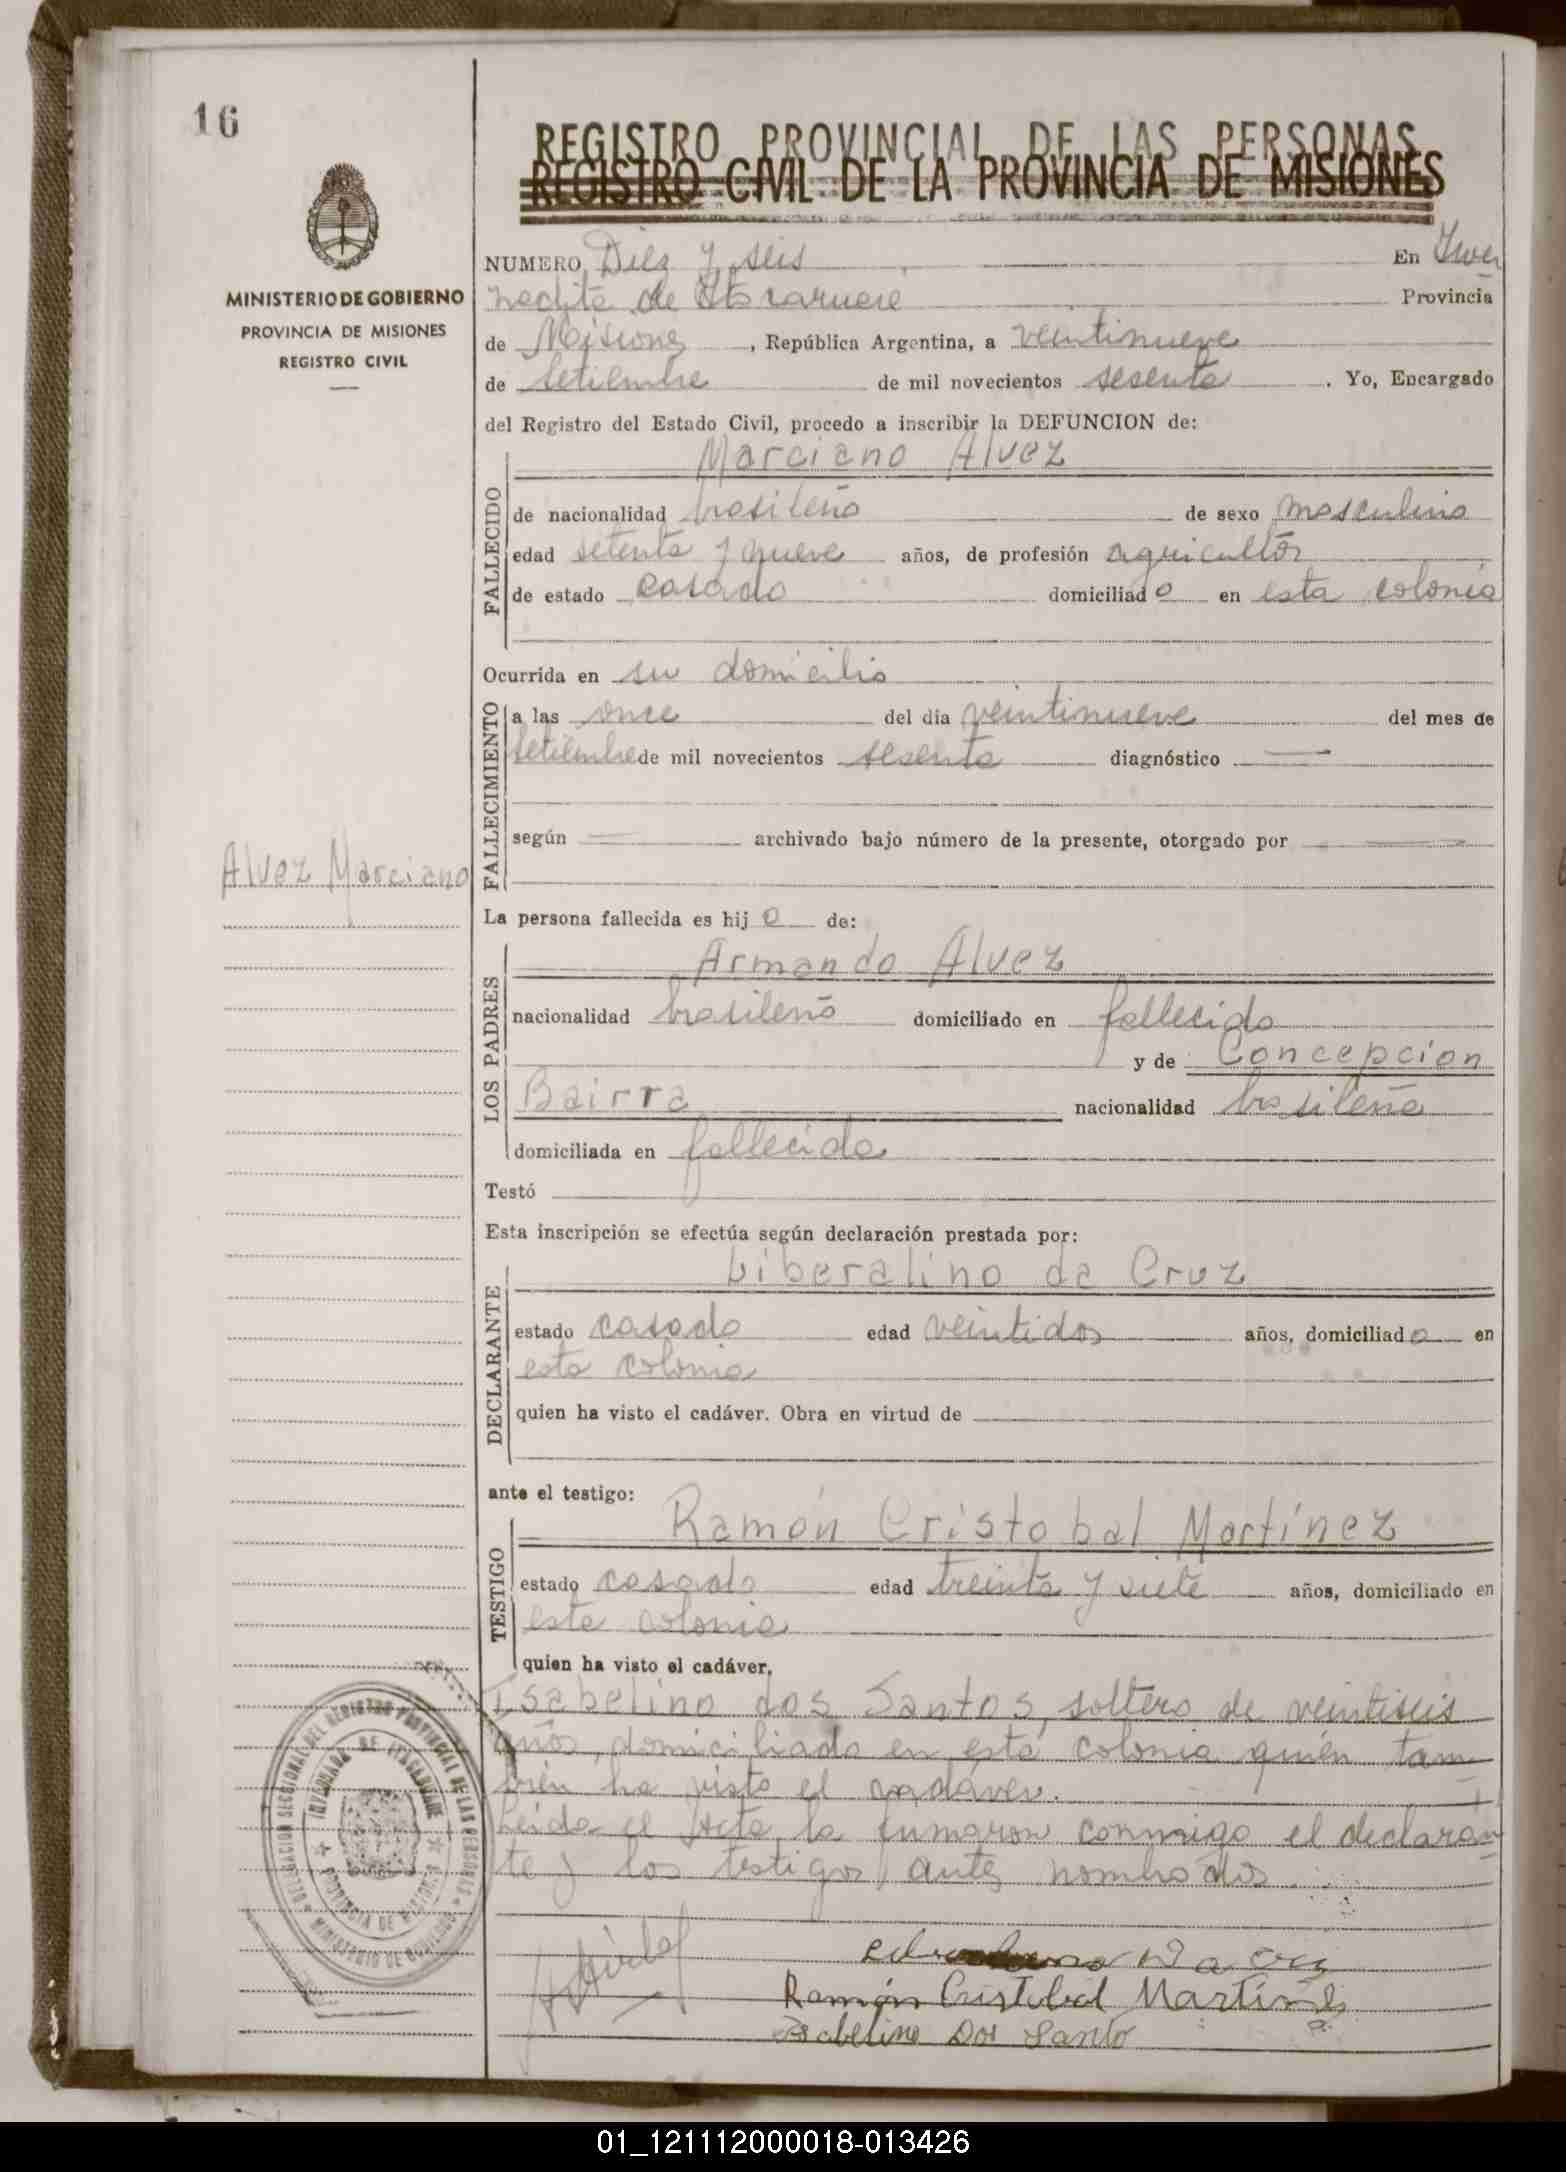 16
REGISTRO PROVINCIAL DE LAS PERSONAS
REGISTRO CIVIL DE LA PROVINCIA DE MISIONES
MINISTERIO DE GOBIERNO
PROVINCIA DE MISIONES
REGISTRO CIVIL
NUMERO Diez y seis En Inver
nadita de Itacaruare Provincia
de Misiones, República Argentina, a veintinueve
de setiembre de mil novecientos sesenta. Yo, Encargado
del Registro del Estado Civil, procedo a inscribir la DEFUNCION de:
Marciano Alvez
FALLECIDO
de nacionalidad brasileño de sexo masculino
edad setenta y nueve años, de profesión agricultor
de estado casado domiciliado en esta colonia
Ocurrida en su domicilio
FALLECIMIENTO
a las once del día veintinueve del mes de
setiembre de mil novecientos sesenta diagnóstico
según archivado bajo número de la presente, otorgado por
Alvez Marciano
La persona fallecida es hijo de:
LOS PADRES
Armando Alvez
nacionalidad brasileño domiciliado en fallecido
y de Concepcion
Bairra nacionalidad brasileña
domiciliada en fallecida
Testó
Esta inscripción se efectúa según declaración prestada por:
DECLARANTE
Liberalino da Cruz
estado casado edad veintidos años, domiciliado en
esta colonia
quien ha visto el cadáver. Obra en virtud de
ante el testigo:
TESTIGO
Ramón Cristobal Martínez
estado casado edad treinta y siete años, domiciliado en
esta colonia
quien ha visto el cadáver.
Isabelino dos Santos, soltero de veintiseis
años, domiciliado en esta colonia quién tam
bién ha visto el cadáver.
Leida el Acta, la firmaron conmigo el declaran
te y los testigos antes nombrados.
DELEGACION SECCIONAL DEL REGISTRO PROVINCIAL DE LAS PERSONAS
INVERNADA DE ITACARUARE
PROVINCIA DE MISIONES
MINISTERIO DE GOBIERNO
Ramón Cristobal Martinez
Isabelino Dos Santo
01_121112000018-013426